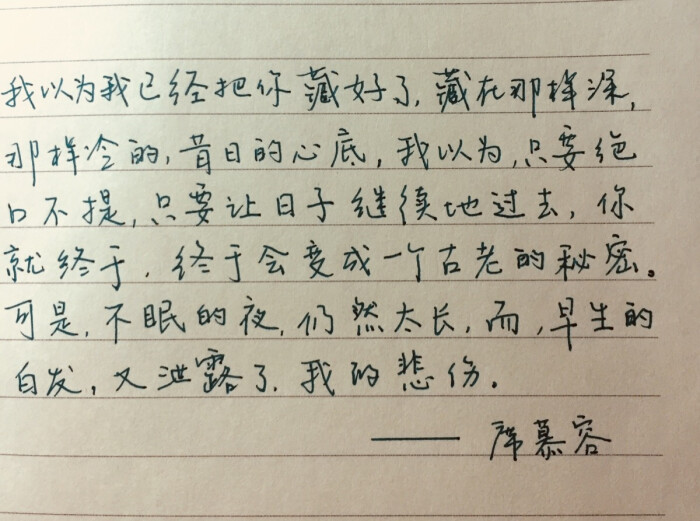 我以为我已经把你藏好了,藏在那样深,
那样冷的,昔日的心底,我以为,只要绝
口不提,只要让日子继续地过去,你
就终于,终于会变成一个古老的秘密。
可是,不眠的夜,仍然太长,而,早生的
白发,又泄露了,我的悲伤。
——席慕容